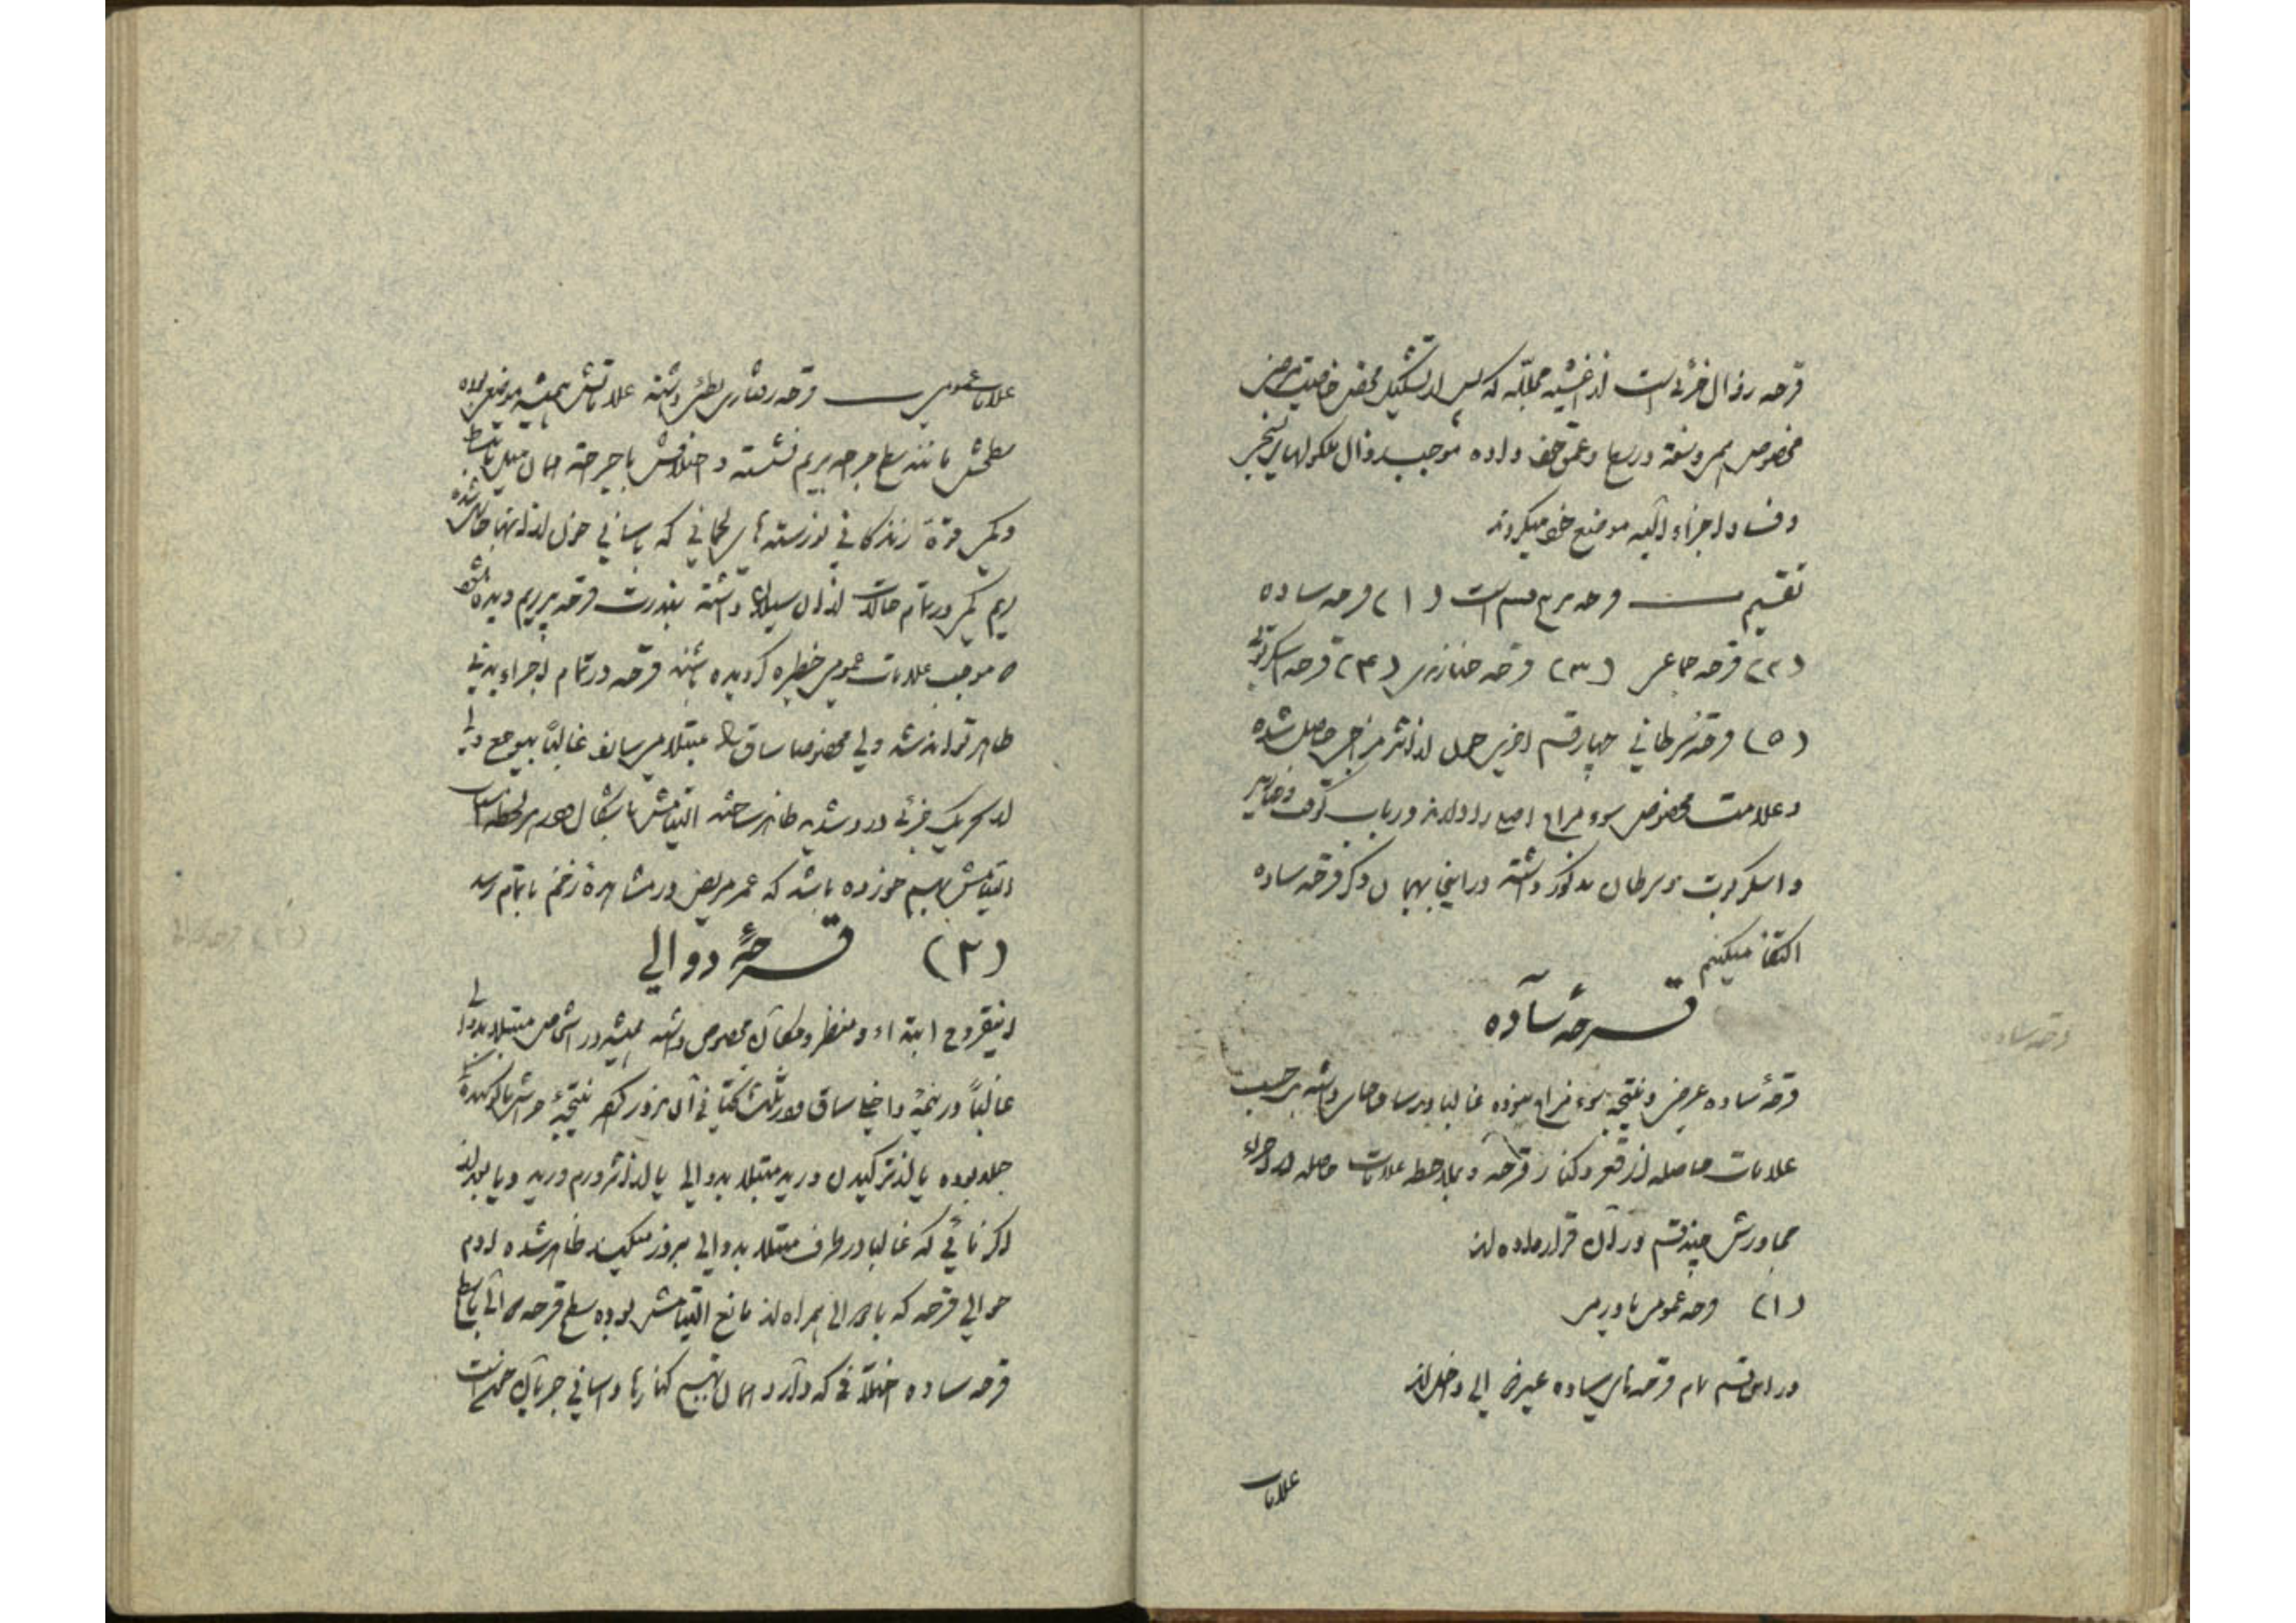 قرحه زوال جزئی است از اغشیه محلله که پس از تشکیل محض خاصیت مرضی
مخصوص بمرور سفته در سطح و عمق خود داده موجب زوال ملکولهای نسجی
و فساد اجزاء آلیه موضع خود میگردند
تقسیم قرحه بر پنج قسم است (۱) قرحه ساده
(۲) قرحه کوفتی (۳) قرحه خنازیری (۴) قرحه اسکربوتی
(۵) قرحه سرطانی چهار قسم اخیر حمل از اثر مزاجی حاصل شده
و علامت مخصوص سوء مزاج اصلی را دارند در باب کوفت و خنازیر
و اسکربوت و سرطان مذکور داشته در اینجا بهمان ذکر قرحه ساده
اکتفا میکنیم
قرحه ساده
قرحهٔ ساده عرض و نتیجه سوء مزاج نبوده غالبا در ساق جای داشته بر حسب
علامات حاصله از قعر و کنار قرحه و بملاحظه علامات حاصله از اجزاء
مجاورش چند قسم در آن قرار داده اند
(۱) قرحه عمومی یا ورمی
در این قسم تمام قرحه های ساده غیر دوالی داخل اند
علامات
علامات عمومی قرحه رفتاری بطئی داشته علاماتش همیشه موضعی بوده
سطحش مانند سطح جراحه بریم نشسته و اختلافش با جراحه همان میل بانبساط
و کمی قوهٔ زندگانی نورسته های لحمانی که باسانی خون از آنها جاری شده
ریم کمی در تمام حالات از آن سیلان داشته بندرت قرحه پر ریم دیده شود
که موجب علامات عمومی خطیره گردیده باشند قرحه در تمام اجزاء بدنی
ظاهر تواند شد ولی مخصوصا ساق را مبتلا میسازد غالباً بیوجع ولی
از تحریک جزئی درد شدید ظاهر ساخته التیامش با اشکال
التیامش بهم خورده باشد که عمر مریض در مشاهرهٔ زخم باتمام رسد
(۲) قرحهٔ دوالی
اینقروح ابتداء و منظر و مکان مخصوص داشته همیشه در اشخاص مبتلا بدوالی
غالباً در نیمهٔ داخلی ساق و در ثلث تحتانی آن بروز کرده نتیجهٔ خراش یا کوبیدگی
جلد بوده یا از ترکیدن ورید مبتلا بدوالی یا از اثر ورم ورید و یا بعد از
اگزمائی که غالبا در طرف مبتلا بدوالی بروز میکند ظاهر شده اودم
حوالی قرحه که با دوالی همراه اند مانع التیامش بوده سطح قرحه دوالی با سطح
قرحه ساده اختلافی که دارد همان تهیج کنارها و آسانی جریان خون است
(۲) قرحه دوالی
قرحه ساده